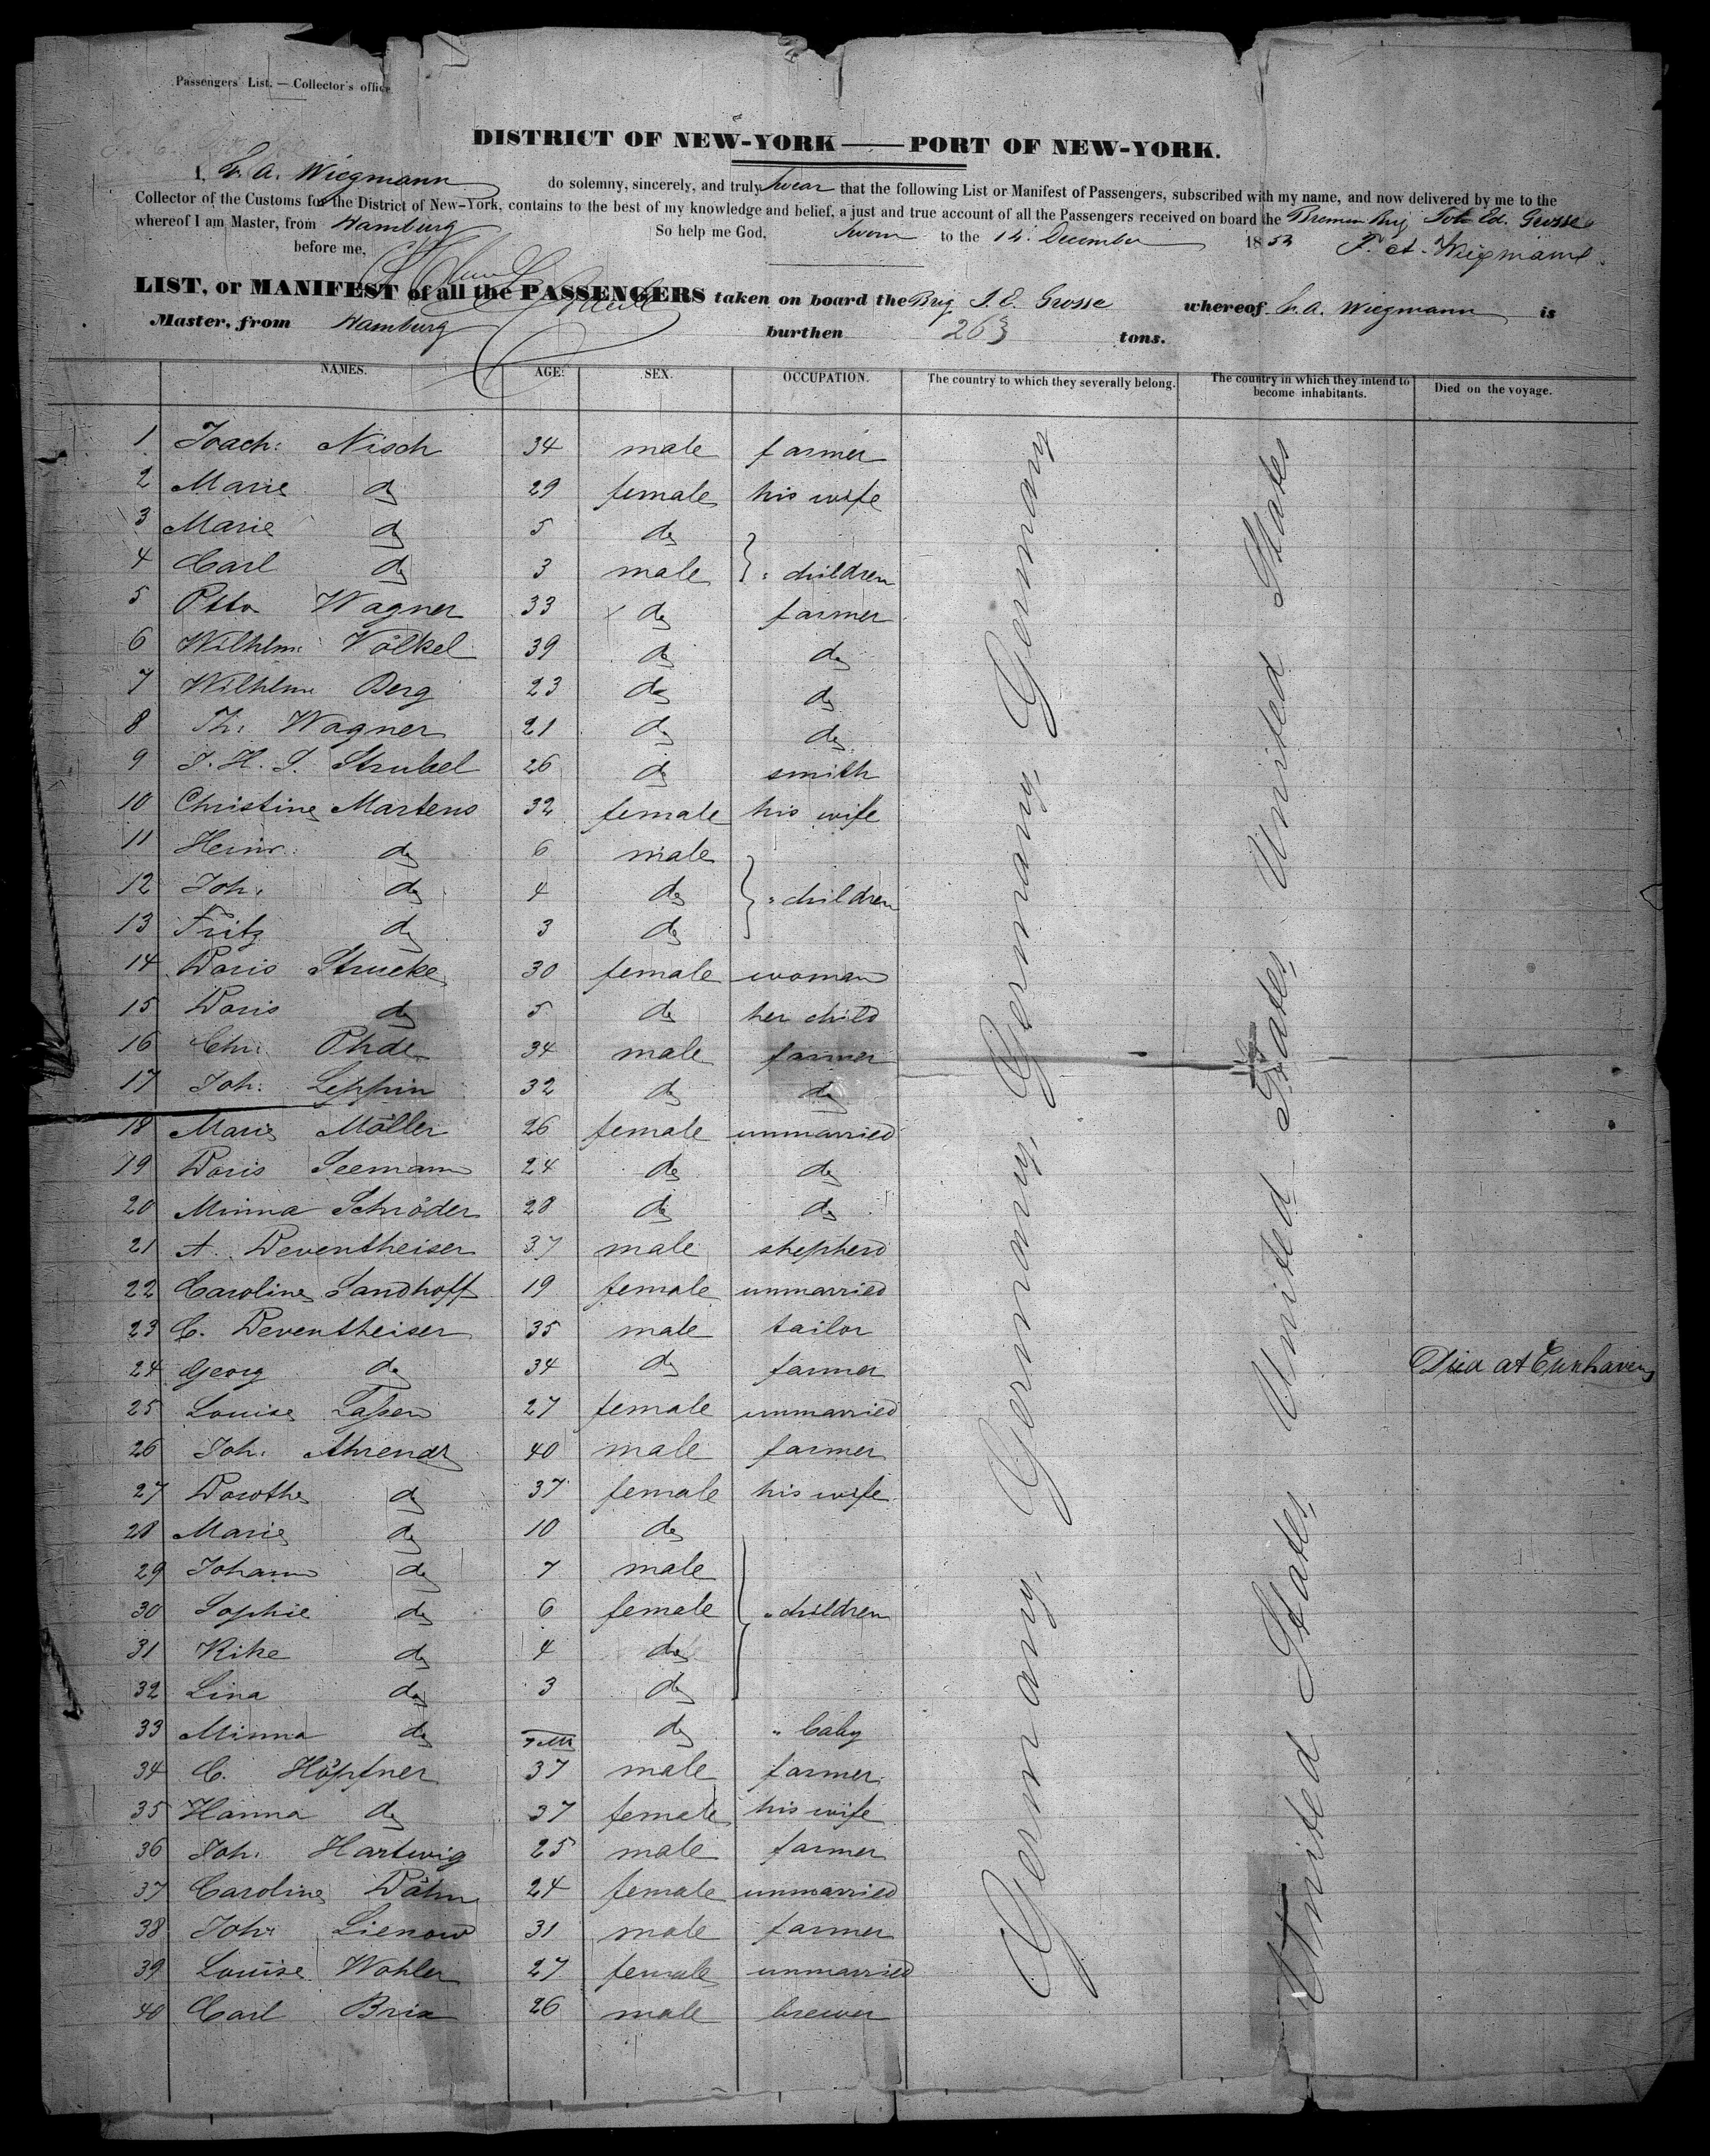 Passengers' List. — Collector's office
DISTRICT OF NEW-YORK — PORT OF NEW-YORK.
I, F. A. Wiegmann do solemny, sincerely, and truly swear that the following List or Manifest of Passengers, subscribed with my name, and now delivered by me to the
Collector of the Customs for the District of New-York, contains to the best of my knowledge and belief, a just and true account of all the Passengers received on board the Bremen Brig Joh Ed. Grosse
whereof I am Master, from Hamburg So help me God, sworn to the 14. December 185
before me, F. A. Wiegmann
LIST, or MANIFEST of all the PASSENGERS taken on board the Brig J. E. Grosse whereof F. A. Wiegmann is
Master, from Hamburg burthen 263 tons.
NAMES. AGE. SEX. OCCUPATION. The country to which they severally belong. The country in which they intend to become inhabitants. Died on the voyage.
1 Joach: Nisch 34 male farmer
2 Marie do 29 female his wife
3 Marie do 5 do
4 Carl do 3 male } " children
5 Otto Wagner 33 do farmer
6 Wilhlm: Völkel 39 do do
7 Wilhlm Berg 23 do do
8 Th: Wagner 21 do do
9 J. H. J. Strubel 26 do smith
10 Christine Martens 32 female his wife
11 Heinr: do 6 male
12 Joh: do 4 do } " children
13 Fritz do 3 do
14 Doris Strucke 30 female woman
15 Doris do 5 do her child
16 Chr: Ohde 34 male farmer
17 Joh: Leppin 32 do do
18 Marie Möller 26 female unmarried
19 Doris Seemann 24 do do
20 Minna Schröder 28 do do
21 A. Deventheiser 37 male shepherd
22 Caroline Sandhoff 19 female unmarried
23 C. Deventheiser 35 male tailor
24 Georg do 34 do farmer Died at Cuxhaven
25 Louise Laſsen 27 female unmarried
26 Joh: Ahrendt 40 male farmer
27 Dorothe do 37 female his wife
28 Marie do 10 do
29 Johann do 7 male
30 Sophie do 6 female } " children
31 Rike do 4 do
32 Lina do 3 do
33 Minna do do " baby
34 C. Höpfner 37 male farmer
35 Hanna do 37 female his wife
36 Joh: Hartwig 25 male farmer
37 Caroline Dähn 24 female unmarried
38 Joh: Lienow 31 male farmer
39 Louise Wohler 27 female unmarried
40 Carl Brix 26 male brewer
Germany, Germany, Germany, Germany
United States, United States, United States